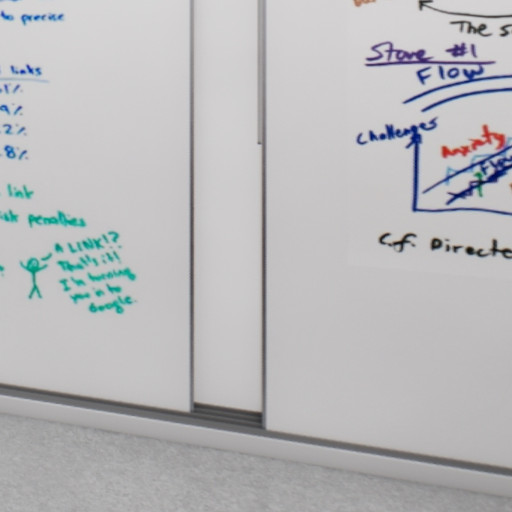 to precise
links
1%
9%
2%
8%
link
penalties
A LINK!?
That's it!
I'm turning
you in to
Google.
The s
Stove #1
FLOW
Challenges
Anxiety
Flow
c.f. Directe